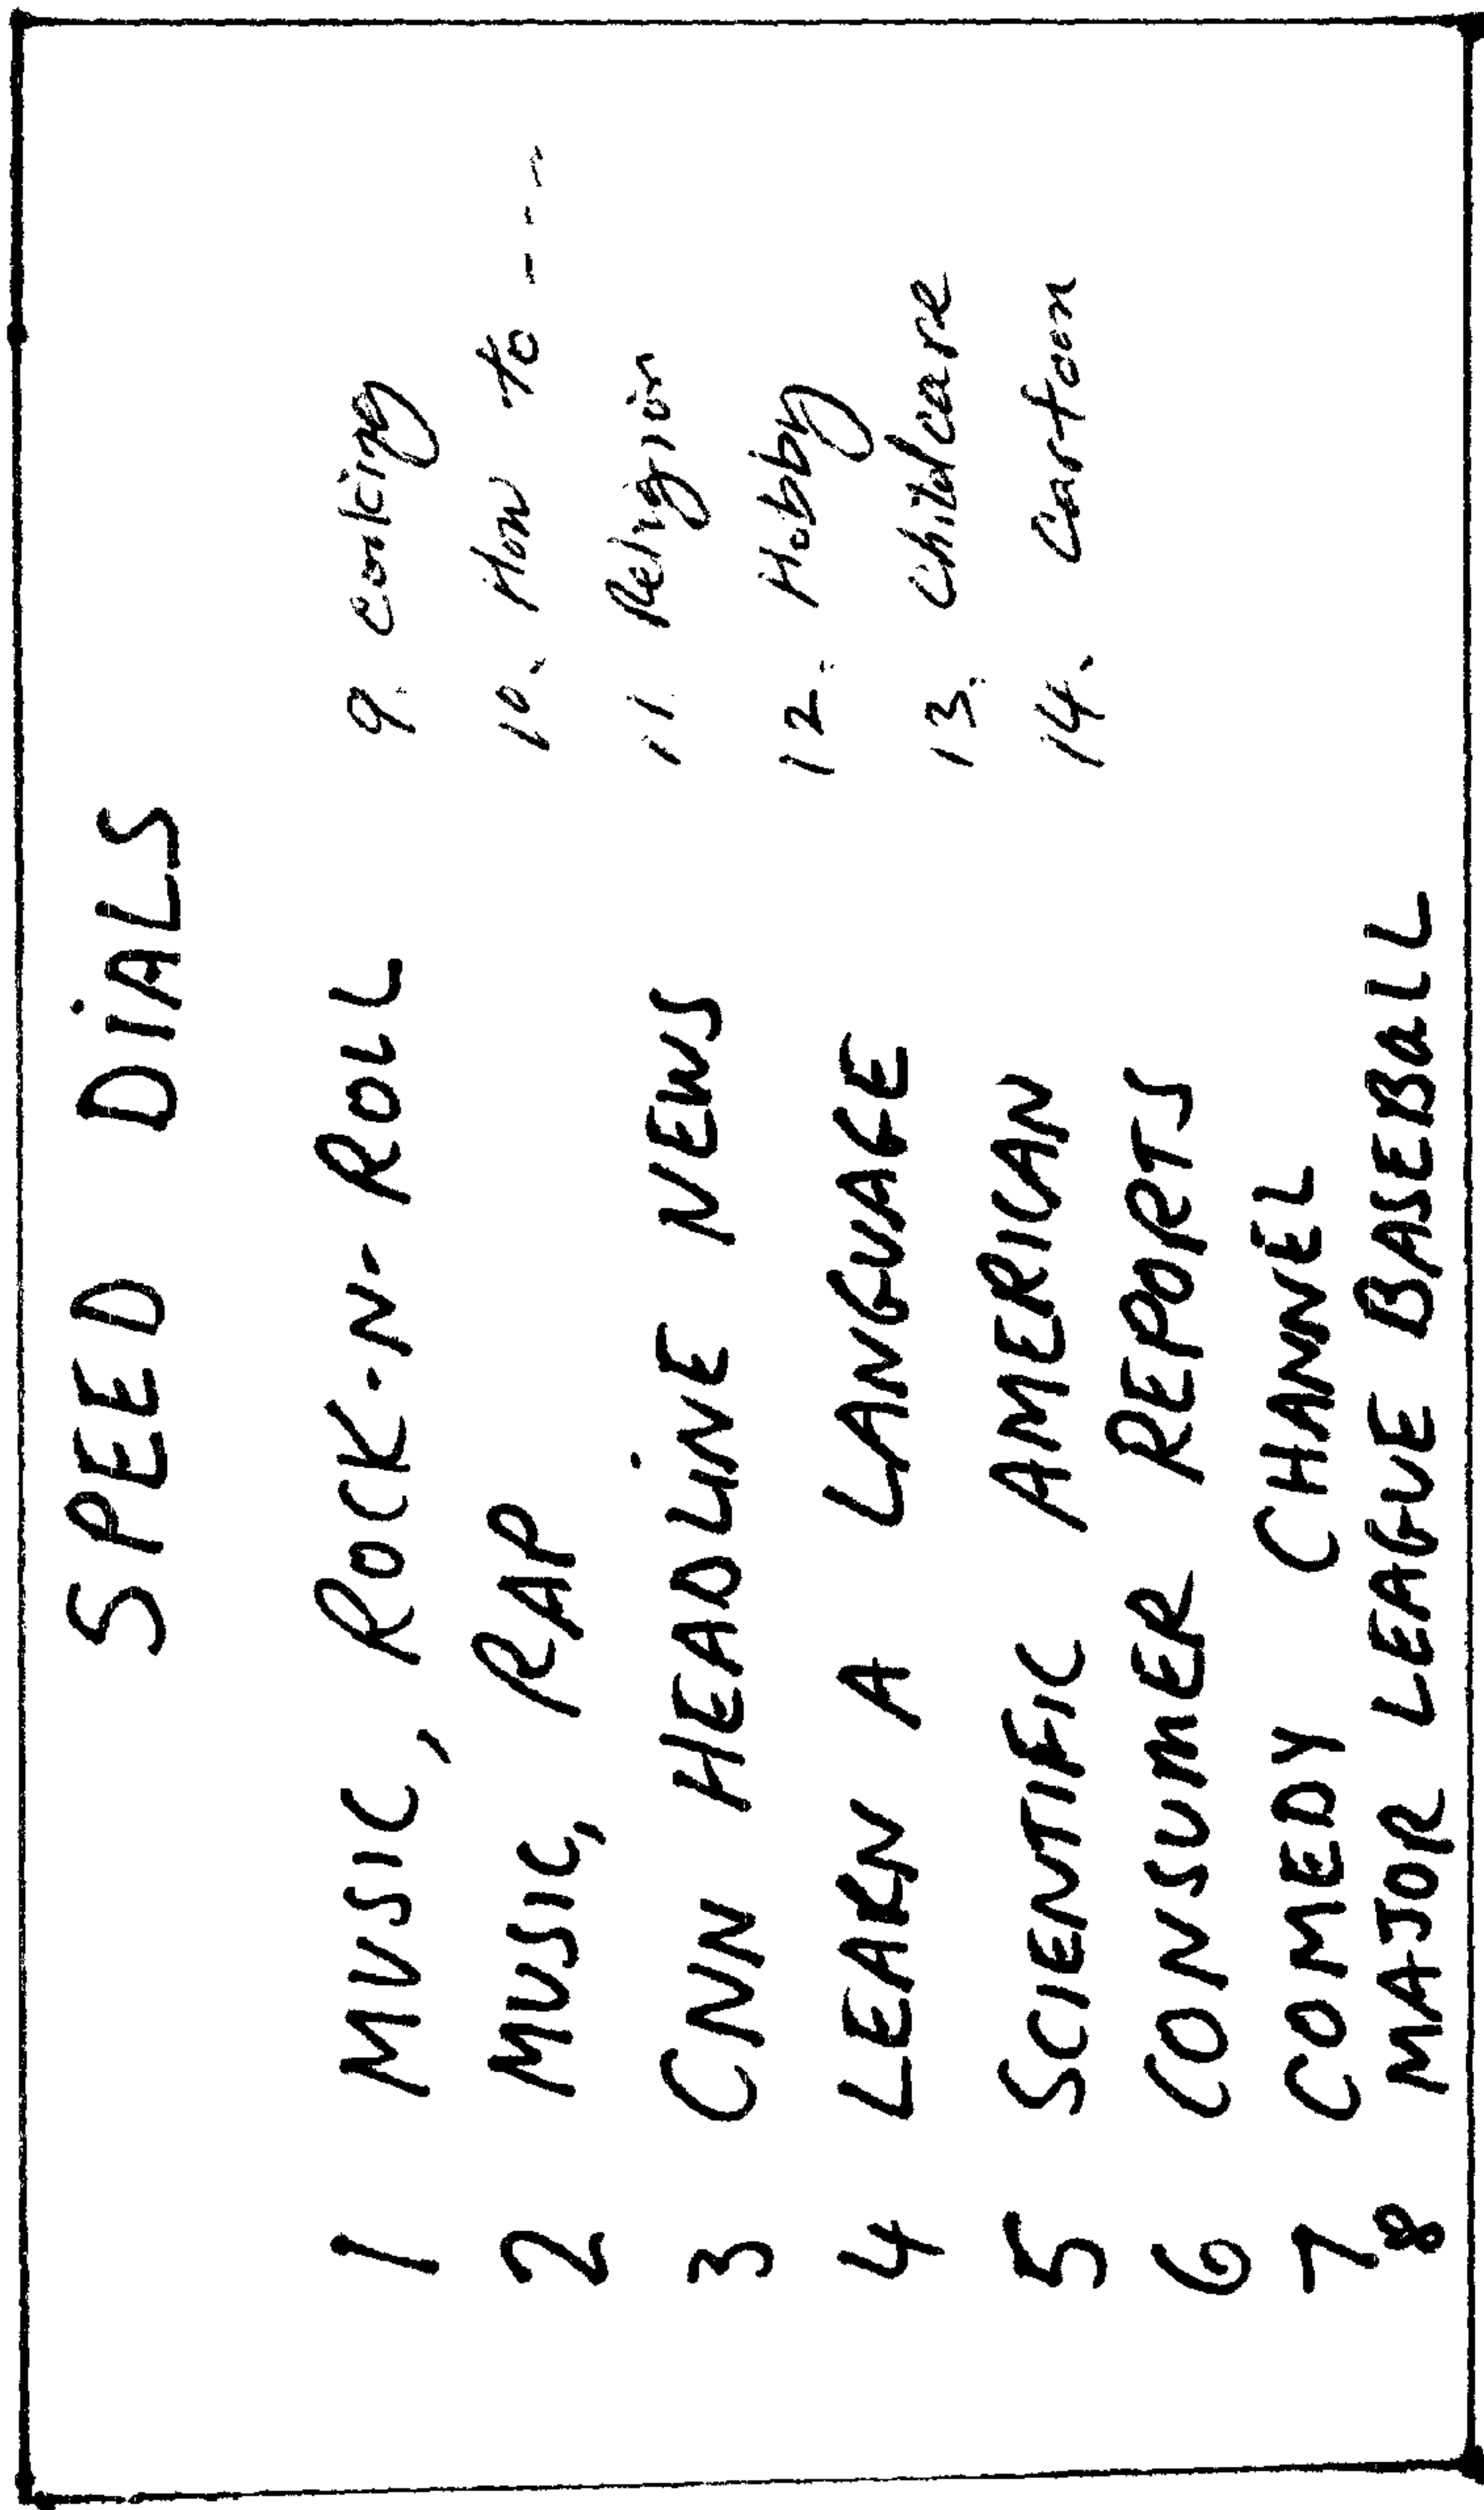 SPEED DIALS
1 MUSIC, ROCK-N-ROLL
2 MUSIC, RAP
3 CNN HEADLINE NEWS
4 LEARN A LANGUAGE
5 SCIENTIFIC AMERICAN
6 CONSUMER REPORTS
7 COMEDY CHANNEL
8 MAJOR LEAGUE BASEBALL
9. cooking
10. How to ----
11. Religion
12. Hobby
13. Childcare
14. Cartoon